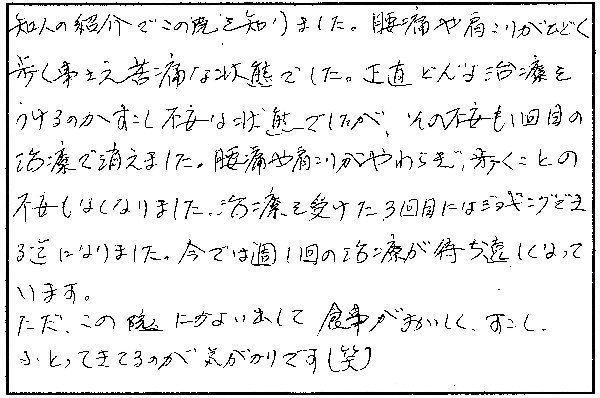 知人の紹介でこの院を知りました。腰痛や肩こりがひどく
歩く事さえ苦痛な状態でした。正直どんな治療を
うけるのかすこし不安な状態でしたが、その不安も1回目の
治療で消えました。腰痛や肩こりがやわらぎ、歩くことの
不安もなくなりました。治療を受けた3回目にはジョギングでき
る迄になりました。今では週1回の治療が待ち遠しくなって
います。
ただ、この院にかよい出して食事がおいしく、すこし、
ふとってきてるのが気がかりです(笑)